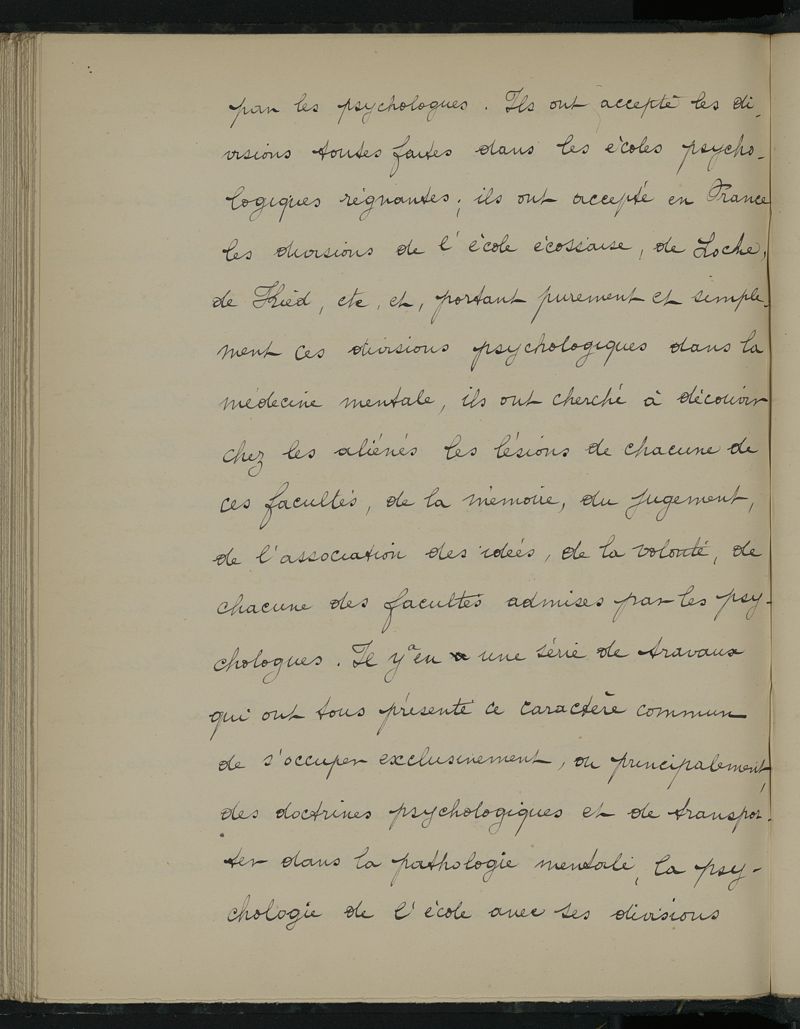 par les psychologues. Ils ont accepté les di-
visions toutes faites dans les écoles psycho-
logiques régnantes; ils ont accepté en France
les divisions de l'école écossaise, de Locke,
de Ried, etc, et, portant purement et simple-
ment ces divisions psychologiques dans la
médecine mentale, ils ont cherché à découvrir
chez les aliénés les lésions de chacune de
ces facultés, de la mémoire, du jugement,
de l'association des idées, de la volonté, de
chacune des facultés admises par les psy-
chologues. Il y a eu une série de travaux
qui ont tous présenté ce caractère commun
de s'occuper exclusivement, ou principalement,
des doctrines psychologiques et de transpor-
ter dans la pathologie mentale, la psy-
chologie de l'école avec ses divisions